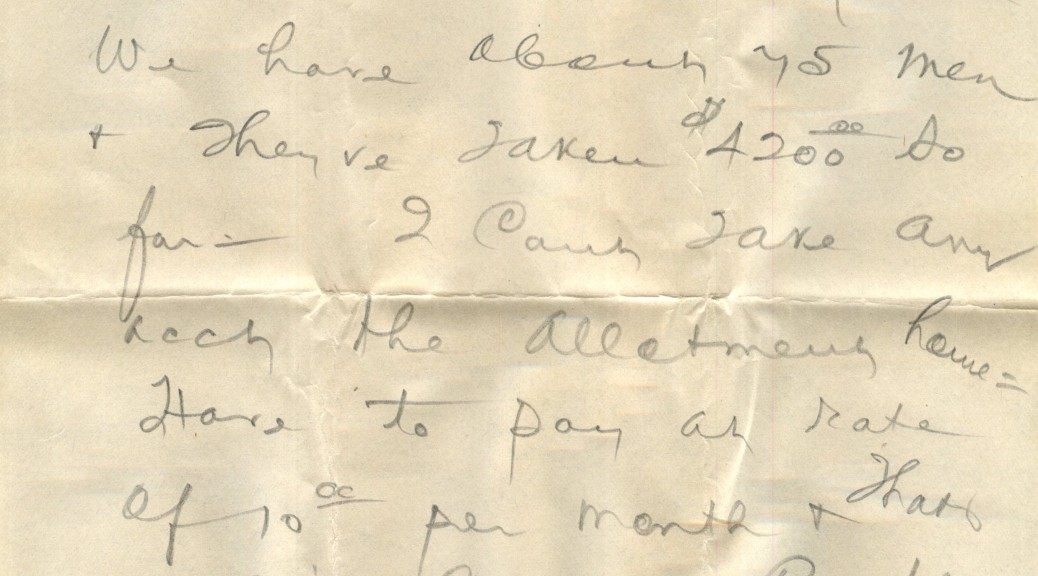 We have about 75 men
+ They've taken $4200.00 so
far — I can't take any
acct the allotment home =
Have to pay at rate
of 10.00 per month + That's